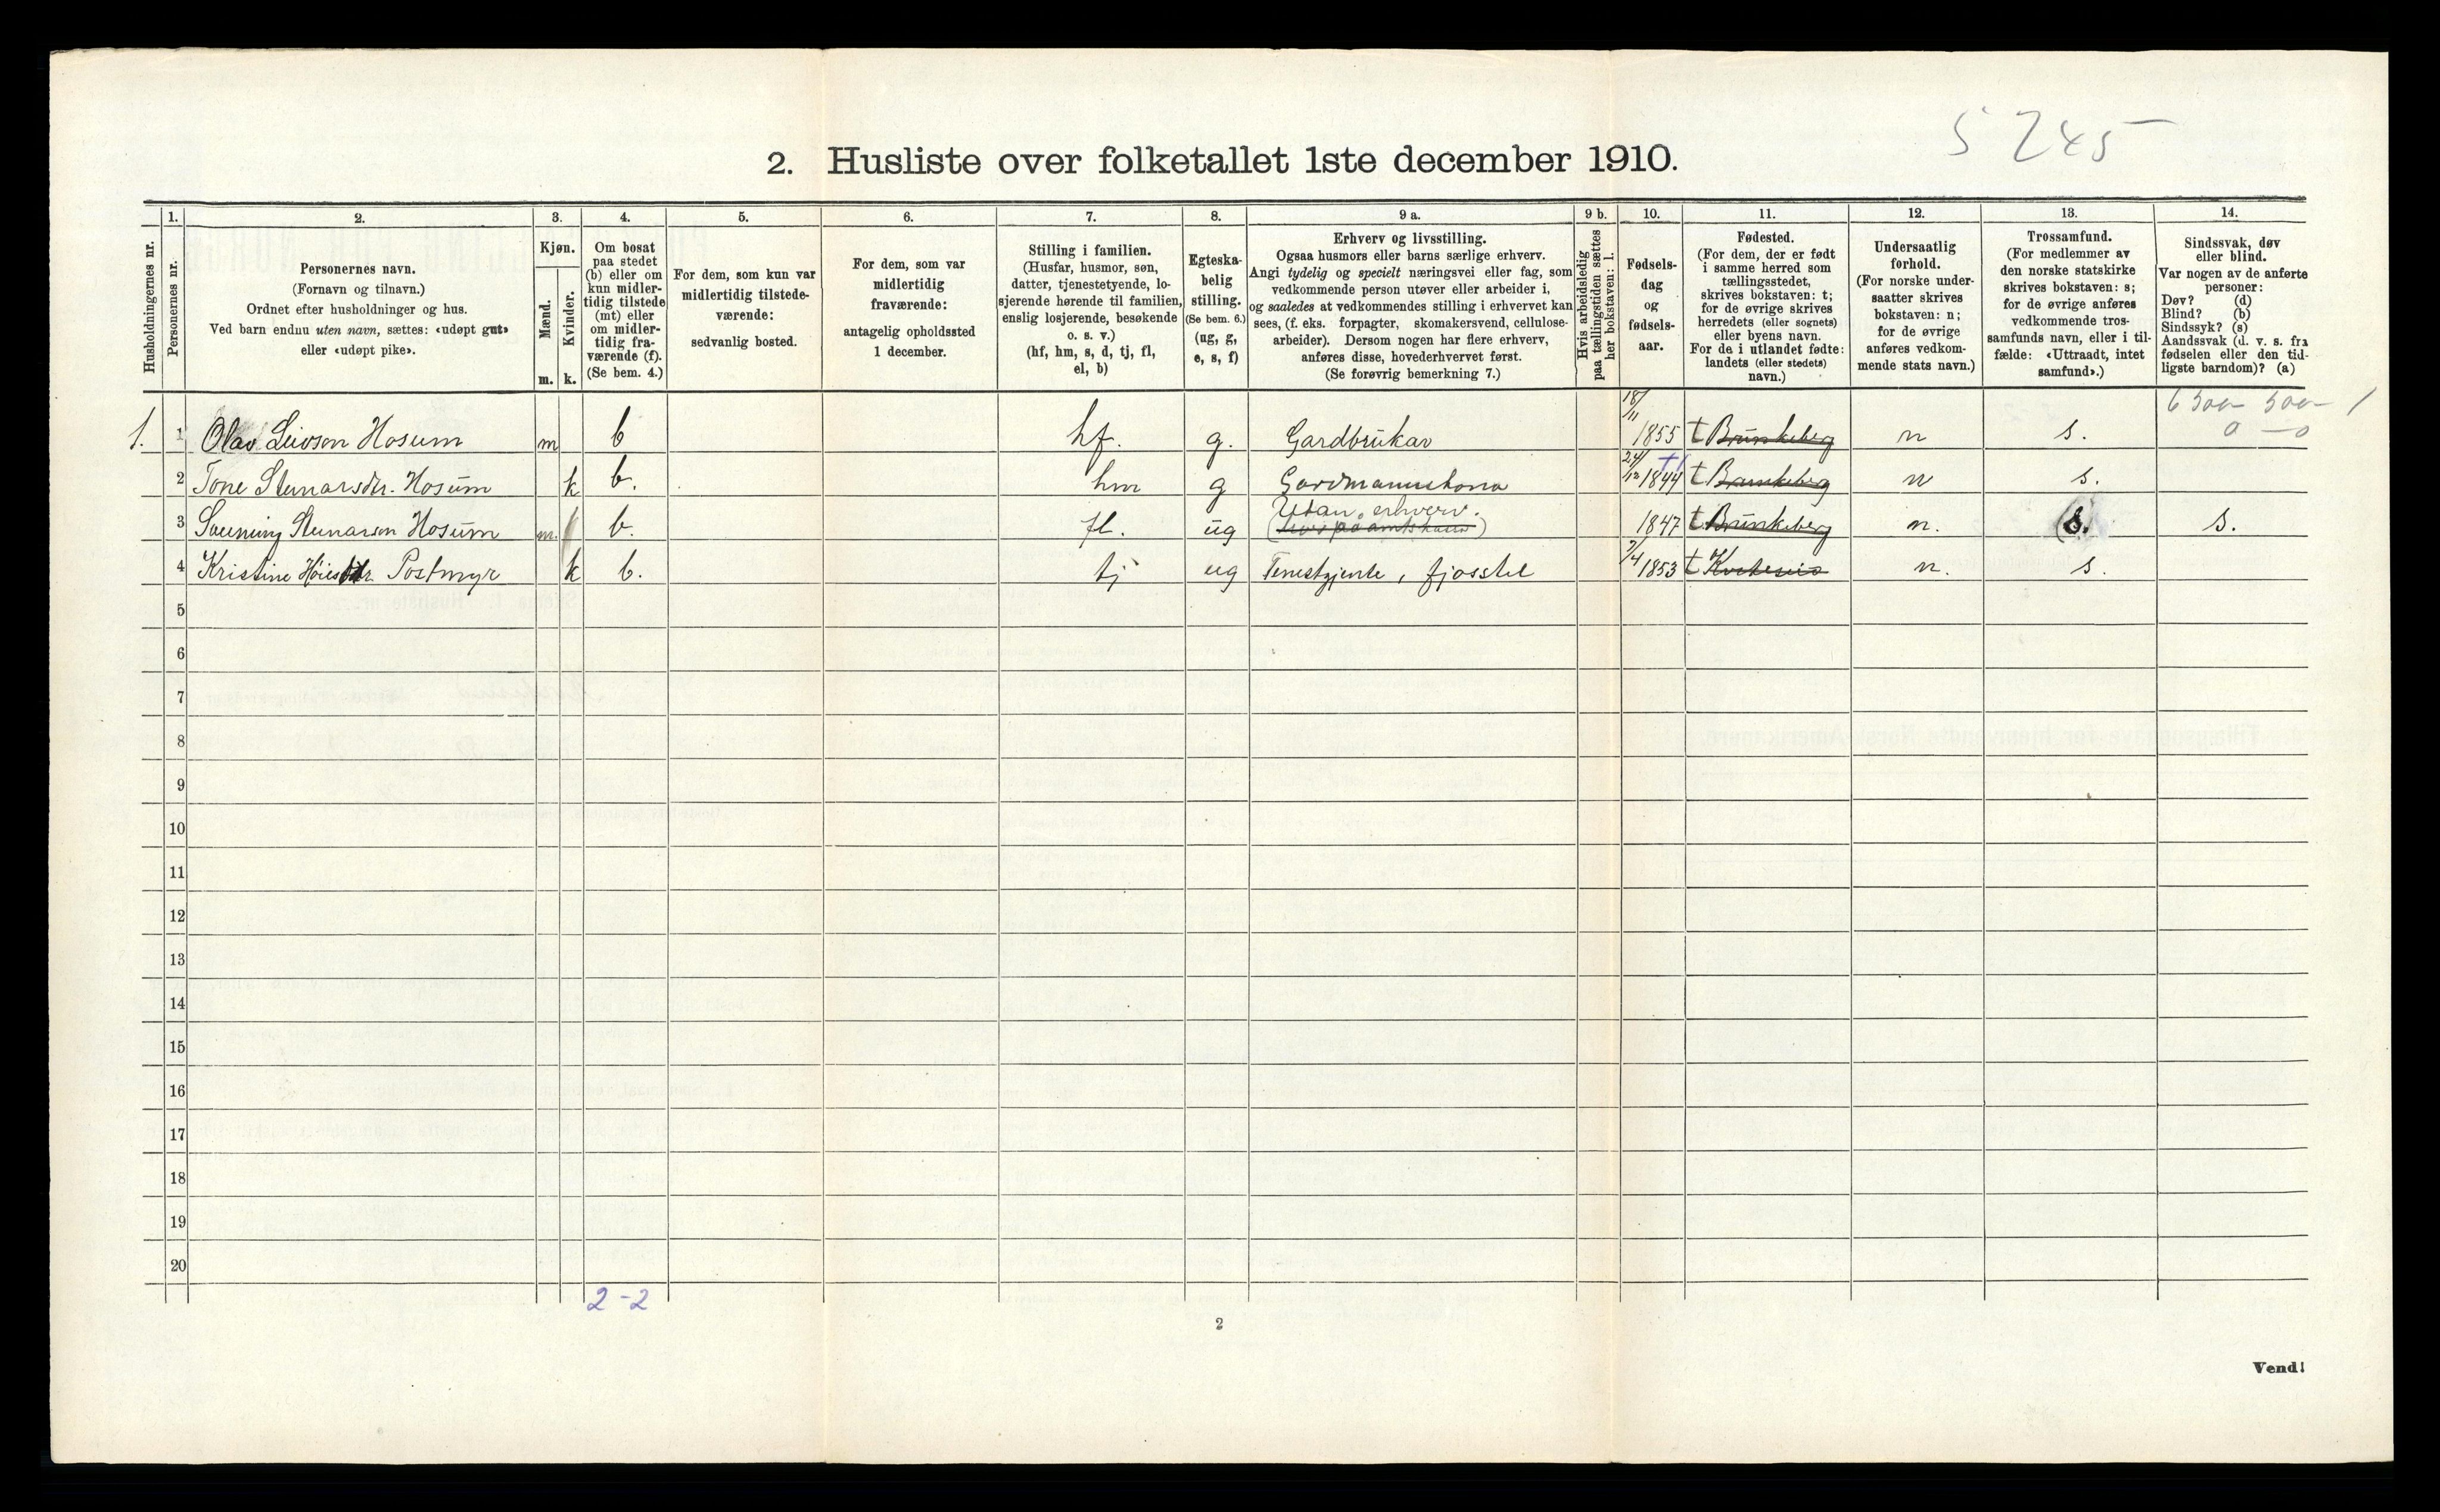 5 245
2. Husliste over folketallet 1ste december 1910.
Husholdningernes nr.
1.
Personernes nr.
2.
Personernes navn.
(Fornavn og tilnavn.)
Ordnet efter husholdninger og hus.
Ved barn endnu uten navn, sættes: «udøpt gut»
eller «udøpt pike».
3.
Kjøn.
Mænd.
m.
Kvinder.
k.
4.
Om bosat
paa stedet
(b) eller om
kun midler-
tidig tilstede
(mt) eller
om midler-
tidig fra-
værende (f).
(Se bem. 4.)
5.
For dem, som kun var
midlertidig tilstede-
værende:
sedvanlig bosted.
6.
For dem, som var
midlertidig
fraværende:
antagelig opholdssted
1 december.
7.
Stilling i familien.
(Husfar, husmor, søn,
datter, tjenestetyende, lo-
sjerende hørende til familien,
enslig losjerende, besøkende
o. s. v.)
(hf, hm, s, d, tj, fl,
el, b)
8.
Egteska-
belig
stilling.
(Se bem. 6.)
(ug, g,
e, s, f)
9 a.
Erhverv og livsstilling.
Ogsaa husmors eller barns særlige erhverv.
Angi tydelig og specielt næringsvei eller fag, som
vedkommende person utøver eller arbeider i,
og saaledes at vedkommendes stilling i erhvervet kan
sees, (f. eks. forpagter, skomakersvend, cellulose-
arbeider). Dersom nogen har flere erhverv,
anføres disse, hovederhvervet først.
(Se forøvrig bemerkning 7.)
9 b.
Hvis arbeidsledig
paa tællingstiden sættes
her bokstaven: l.
10.
Fødsels-
dag
og
fødsels-
aar.
11.
Fødested.
(For dem, der er født
i samme herred som
tællingsstedet,
skrives bokstaven: t;
for de øvrige skrives
herredets (eller sognets)
eller byens navn.
For de i utlandet fødte:
landets (eller stedets)
navn.)
12.
Undersaatlig
forhold.
(For norske under-
saatter skrives
bokstaven: n;
for de øvrige
anføres vedkom-
mende stats navn.)
13.
Trossamfund.
(For medlemmer av
den norske statskirke
skrives bokstaven: s;
for de øvrige anføres
vedkommende tros-
samfunds navn, eller i til-
fælde: «Uttraadt, intet
samfund».)
14.
Sindssvak, døv
eller blind.
Var nogen av de anførte
personer:
Døv? (d)
Blind? (b)
Sindssyk? (s)
Aandssvak (d. v. s. fra
fødselen eller den tid-
ligste barndom)? (a)
1. 1 Olav Leivson Hosum m b hf. g. Gardbrukar 18/11 1855 t Brunkeberg n s.
2 Tone Steinarsdtr. Hosum k b. hm g Gardmannskona 24/12 1844 t Brunkeberg n s.
3 Sveining Steinarson Hosum m. b. fl. ug Utan erhverv. 1847 t Brunkeberg n. (s.) s.
4 Kristine Høiesdtr. Postmyr k b. tj ug Tenestgjente, fjosstel 7/4 1853 t Kviteseid n. s.
5
6
7
8
9
10
11
12
13
14
15
16
17
18
19
20
2 - 2
2
Vend!